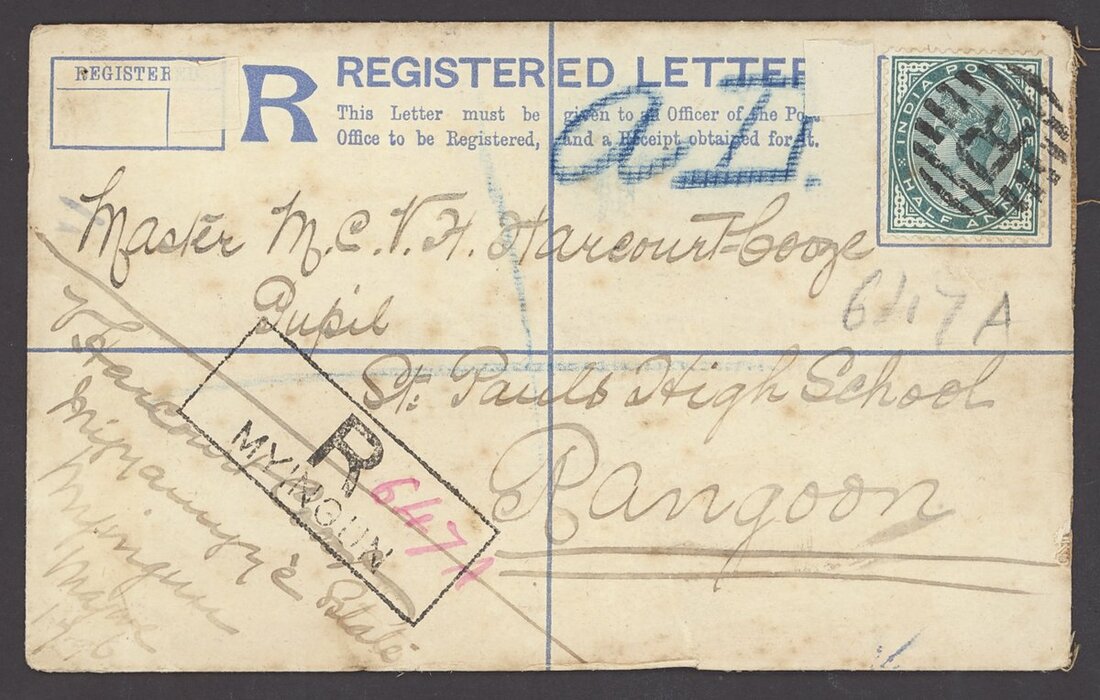 REGISTERED
R
REGISTERED LETTER
This Letter must be given to an Officer of the Post
Office to be Registered, and a Receipt obtained for it.
INDIA POSTAGE
HALF ANNA
Master M.C.V.H. Harcourt-Cooze
Pupil
St. Pauls High School
Rangoon
6417 A
R
MYINGUN
6417 A
V Harcourt
Estate
Myingun